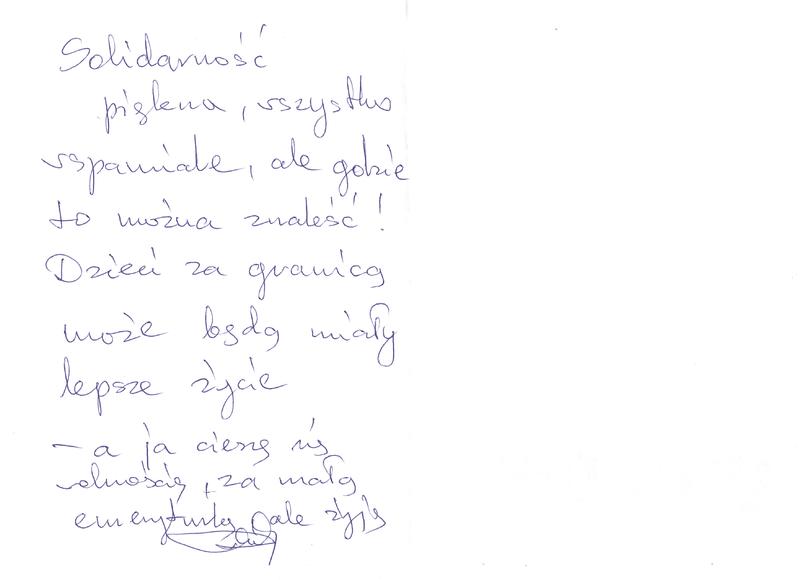 Solidarność
piękna, wszystko
wspaniałe, ale gdzie
to można znaleść!
Dzieci za granicą
może będą miały
lepsze życie
– a ja cieszę się
wolnością, za małą
emeryturkę ale żyję